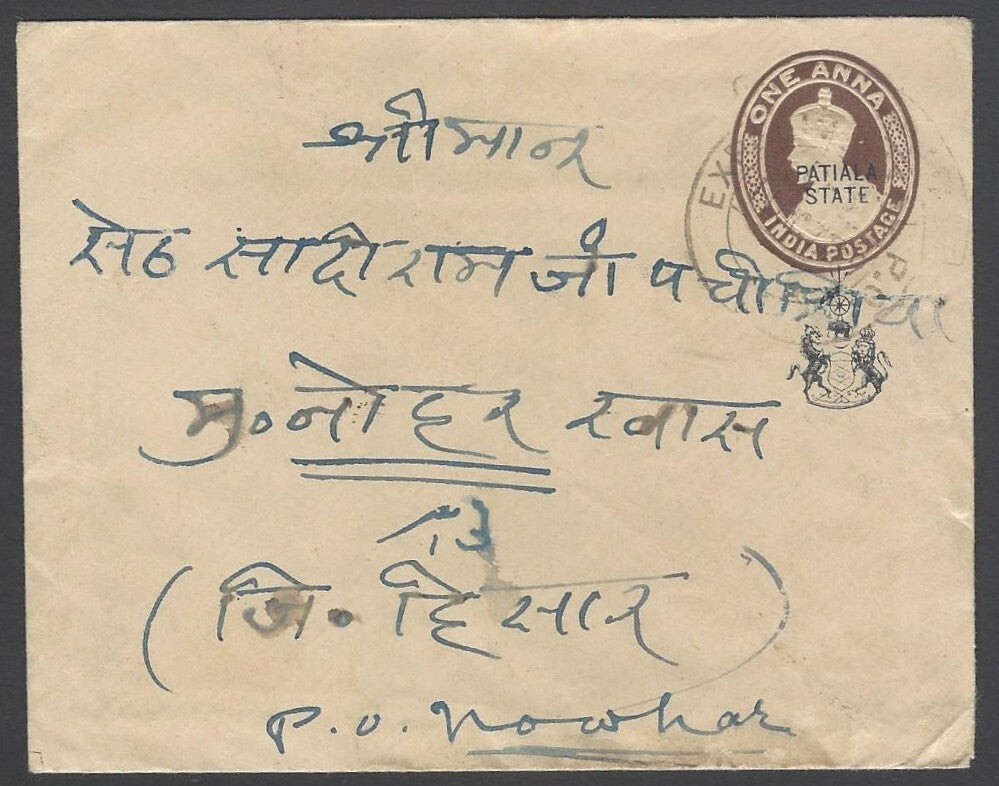 ONE ANNA
PATIALA
STATE
INDIA POSTAGE
श्रीमान
सेठ सादीराम जी
मु० नोहर खास
(जि० हिसार)
P.O. Nowhar